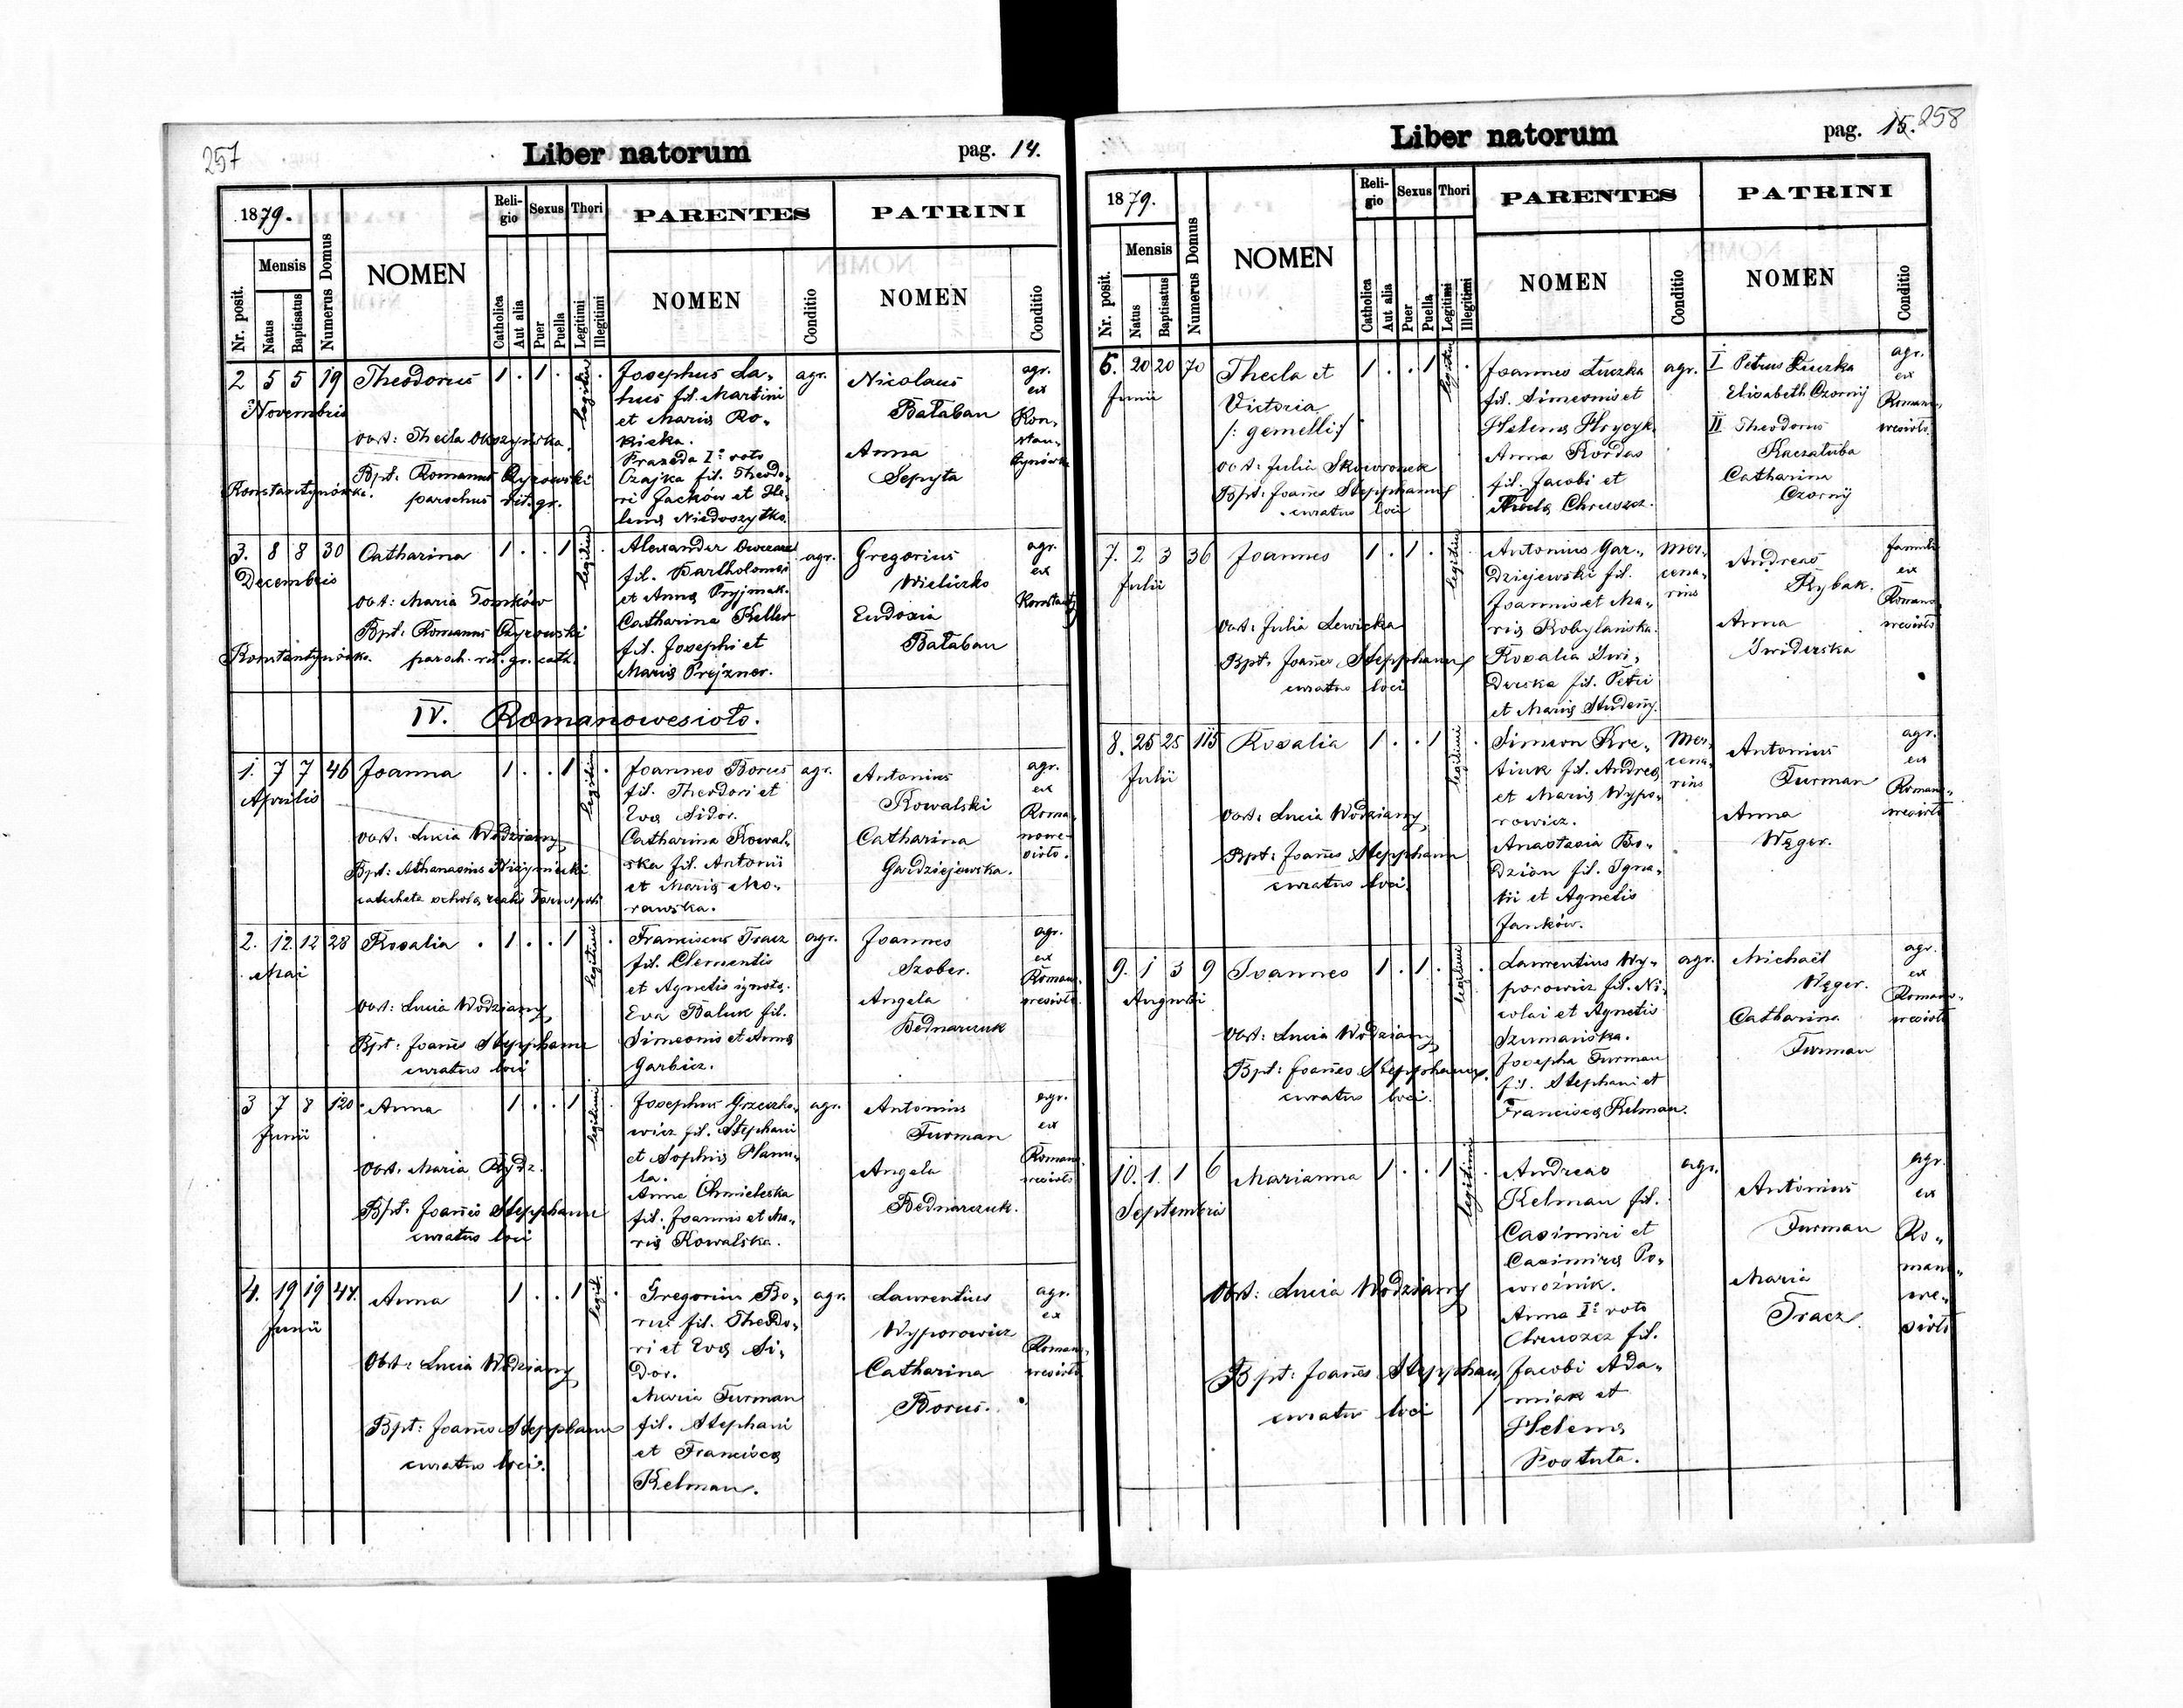 257
Liber natorum
pag. 14.
1879.
Nr. posit.
Mensis
Natus
Baptisatus
Numerus Domus
NOMEN
Religio
Catholica
Aut alia
Sexus
Puer
Puella
Thori
Legitimi
Illegitimi
PARENTES
NOMEN
Conditio
PATRINI
NOMEN
Conditio
2 5 5 19 Theodorus 1 . 1 .
Novembris
obst: Thecla
Bpt: Romanus
parochus rit. gr.
Josephus La-
hus fil. Martini
et Mariæ Ro-
kicka.
Praxeda Iº voto
Czajka fil. Theodo-
ri Jacków et He-
lenæ Niedoszytko.
agr.
Nicolaus
Bałaban
Anna
Sepyta
agr.
ex
Kon-
stan-
tynówka
Konstantynówka.
3. 8 8 30 Catharina 1 . . 1
Decembris
obst: Maria Tomków
Bpt: Romanus
paroch. rit. gr. cath.
Konstantynówka.
Alexander Owczarz
fil. Bartholomei
et Annæ Pryjmak.
Catharina Keller
fil. Josephi et
Mariæ Prejzner.
agr.
Gregorius
Wieliczko
Eudoxia
Bałaban
agr.
ex
IV. Romanowesioło.
1. 7 7 46 Joanna 1 . . 1
Aprilis
obst: Lucia Wodziany
Bpt: Athanasius
catecheta scholæ realis Tarnopoli
Joannes Borus
fil. Theodori et
Evæ Sidor.
Catharina Kowal-
ska fil. Antonii
et Mariæ Mo-
rawska.
agr.
Antonius
Kowalski
Catharina
Gardziejewska.
agr.
ex
Roma-
nowe-
sioło.
2. 12. 12 28 Rosalia . 1 . . 1
Mai
obst: Lucia Wodziany
Bpt: Joañes Stepphann
curatus loci
legitimi
Franciscus Tracz
fil. Clementis
et Agnetis ignota.
Eva Baluk fil.
Simeonis et Annæ
Garbicz.
agr.
Joannes
Szober.
Angela
Bednarczuk
agr.
ex
Romano-
wesioło
3 7 8 120 Anna 1 . . 1
Junii
obst. Maria Rydz.
Bpt: Joañes Stepphann
curatus loci
legitimi
Josephus Grzeszko-
wicz fil. Stephani
et Sophiæ Hanu-
la.
Anna Chmielecka
fil. Joannis et Ma-
riæ Kowalska.
agr.
Antonius
Furman
Angela
Bednarczuk.
agr.
ex
Romano-
wesioło
4. 19 19 47. Anna 1 . . 1
Junii
Obst: Lucia Wodziany
Bpt: Joañes Stepphann
curatus loci.
legit.
Gregorius Bo-
rus fil. Theodo-
ri et Evæ Si-
dor.
Maria Furman
fil. Stephani
et Franciscæ
Kelman.
agr.
Laurentius
Wyporowicz
Catharina
Borus.
agr.
ex
Romano-
wesioło
258
Liber natorum
pag. 15.
1879.
Nr. posit.
Mensis
Natus
Baptisatus
Numerus Domus
NOMEN
Religio
Catholica
Aut alia
Sexus
Puer
Puella
Thori
Legitimi
Illegitimi
PARENTES
NOMEN
Conditio
PATRINI
NOMEN
Conditio
20 20 70 Thecla et 1 . . 1
Junii
Victoria
/: gemelli :/
obst: Julia Skowronek
Bpt: Joañes Stepphann
curatus loci
Joannes Łuczka
fil. Simeonis et
Helenæ Hrycyk
Anna Kordas
fil. Jacobi et
Theclæ Chruszcz.
agr.
I Petrus Łuczka
Elisabeth Czornij
II Theodorus
Kaczałuba
Catharina
Czornij
agr.
ex
Romano-
wesioło
7. 2 3 36 Joannes 1 . 1 .
Julii
obst: Julia Lewicka
Bpt. Joañes Stepphann
curatus loci
Antonius Gar-
dziejewski fil.
Joannis et Ma-
riæ Kobylańska.
Rosalia Świ-
derska fil. Petri
et Mariæ Studeny.
Mer-
cena-
rius
Andreas
Rybak.
Anna
Świderska
ex
Romano-
wesioło
8. 25 25 115 Rosalia 1 . . 1
Julii
obst: Lucia Wodziany
Bpt: Joañes Stepphann
curatus loci.
legitimi
Simeon Kre-
tiuk fil. Andreæ
et Mariæ Wypo-
rowicz.
Anastasia Bo-
dzion fil. Igna-
tii et Agnetis
Janków.
Mer-
cena-
rius
Antonius
Furman
Anna
Węger.
agr.
ex
Romano-
wesioło
9. 1 3 9 Joannes 1 . 1 .
Augusti
Obst: Lucia Wodziany
Bpt: Joañes Stepphann
curatus loci.
Laurentius Wy-
porowicz fil. Ni-
colai et Agnetis
Szumańska.
Josepha Furman
fil. Stephani et
Franciscæ Kelman.
agr.
Michaël
Węger.
Catharina
Furman
agr.
ex
Romano-
wesioło
10. 1. 1 6 Marianna 1 . . 1
Septembris
Obst: Lucia Wodziany
Bpt: Joañes Stepphann
curatus loci
legitimi
Andreas
Kelman fil.
Casimiri et
Casimiræ Po-
wroźnik.
Anna Iº voto
Chruszcz fil.
Jacobi Ada-
miak et
Helenæ
Postuta.
agr.
Antonius
Furman
Maria
Tracz
agr.
ex
Ro-
mano-
we-
sioło